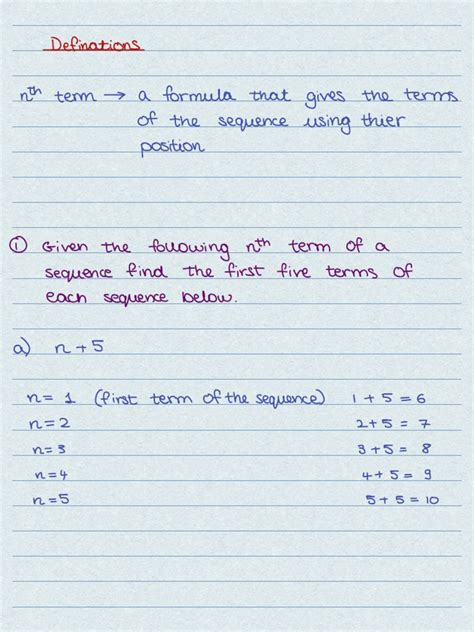 Definations
nth term → a formula that gives the terms
of the sequence using thier
position
① Given the following nth term of a
sequence find the first five terms of
each sequence below.
a) n + 5
n = 1 (first term of the sequence) 1 + 5 = 6
n = 2 2 + 5 = 7
n = 3 3 + 5 = 8
n = 4 4 + 5 = 9
n = 5 5 + 5 = 10